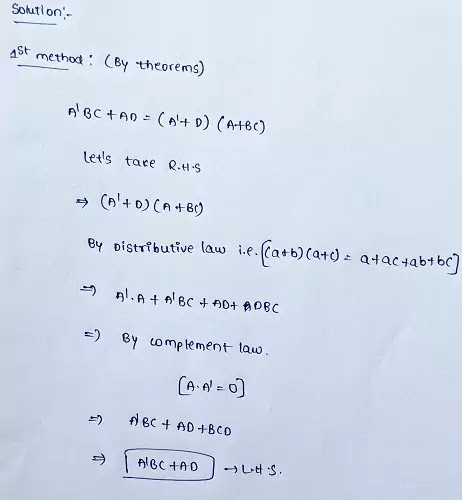 Solution:-
1st method: (By theorems)
A'BC + AD = (A'+ D) (A+BC)
Let's take R.H.S
⇒ (A'+D)(A+BC)
By Distributive law i.e. [(a+b)(a+c) = a+ac+ab+bc]
⇒ A'.A + A'BC + AD + ADBC
⇒ By complement law.
[A.A' = 0]
⇒ A'BC + AD + BCD
⇒ A'BC + AD → L.H.S.